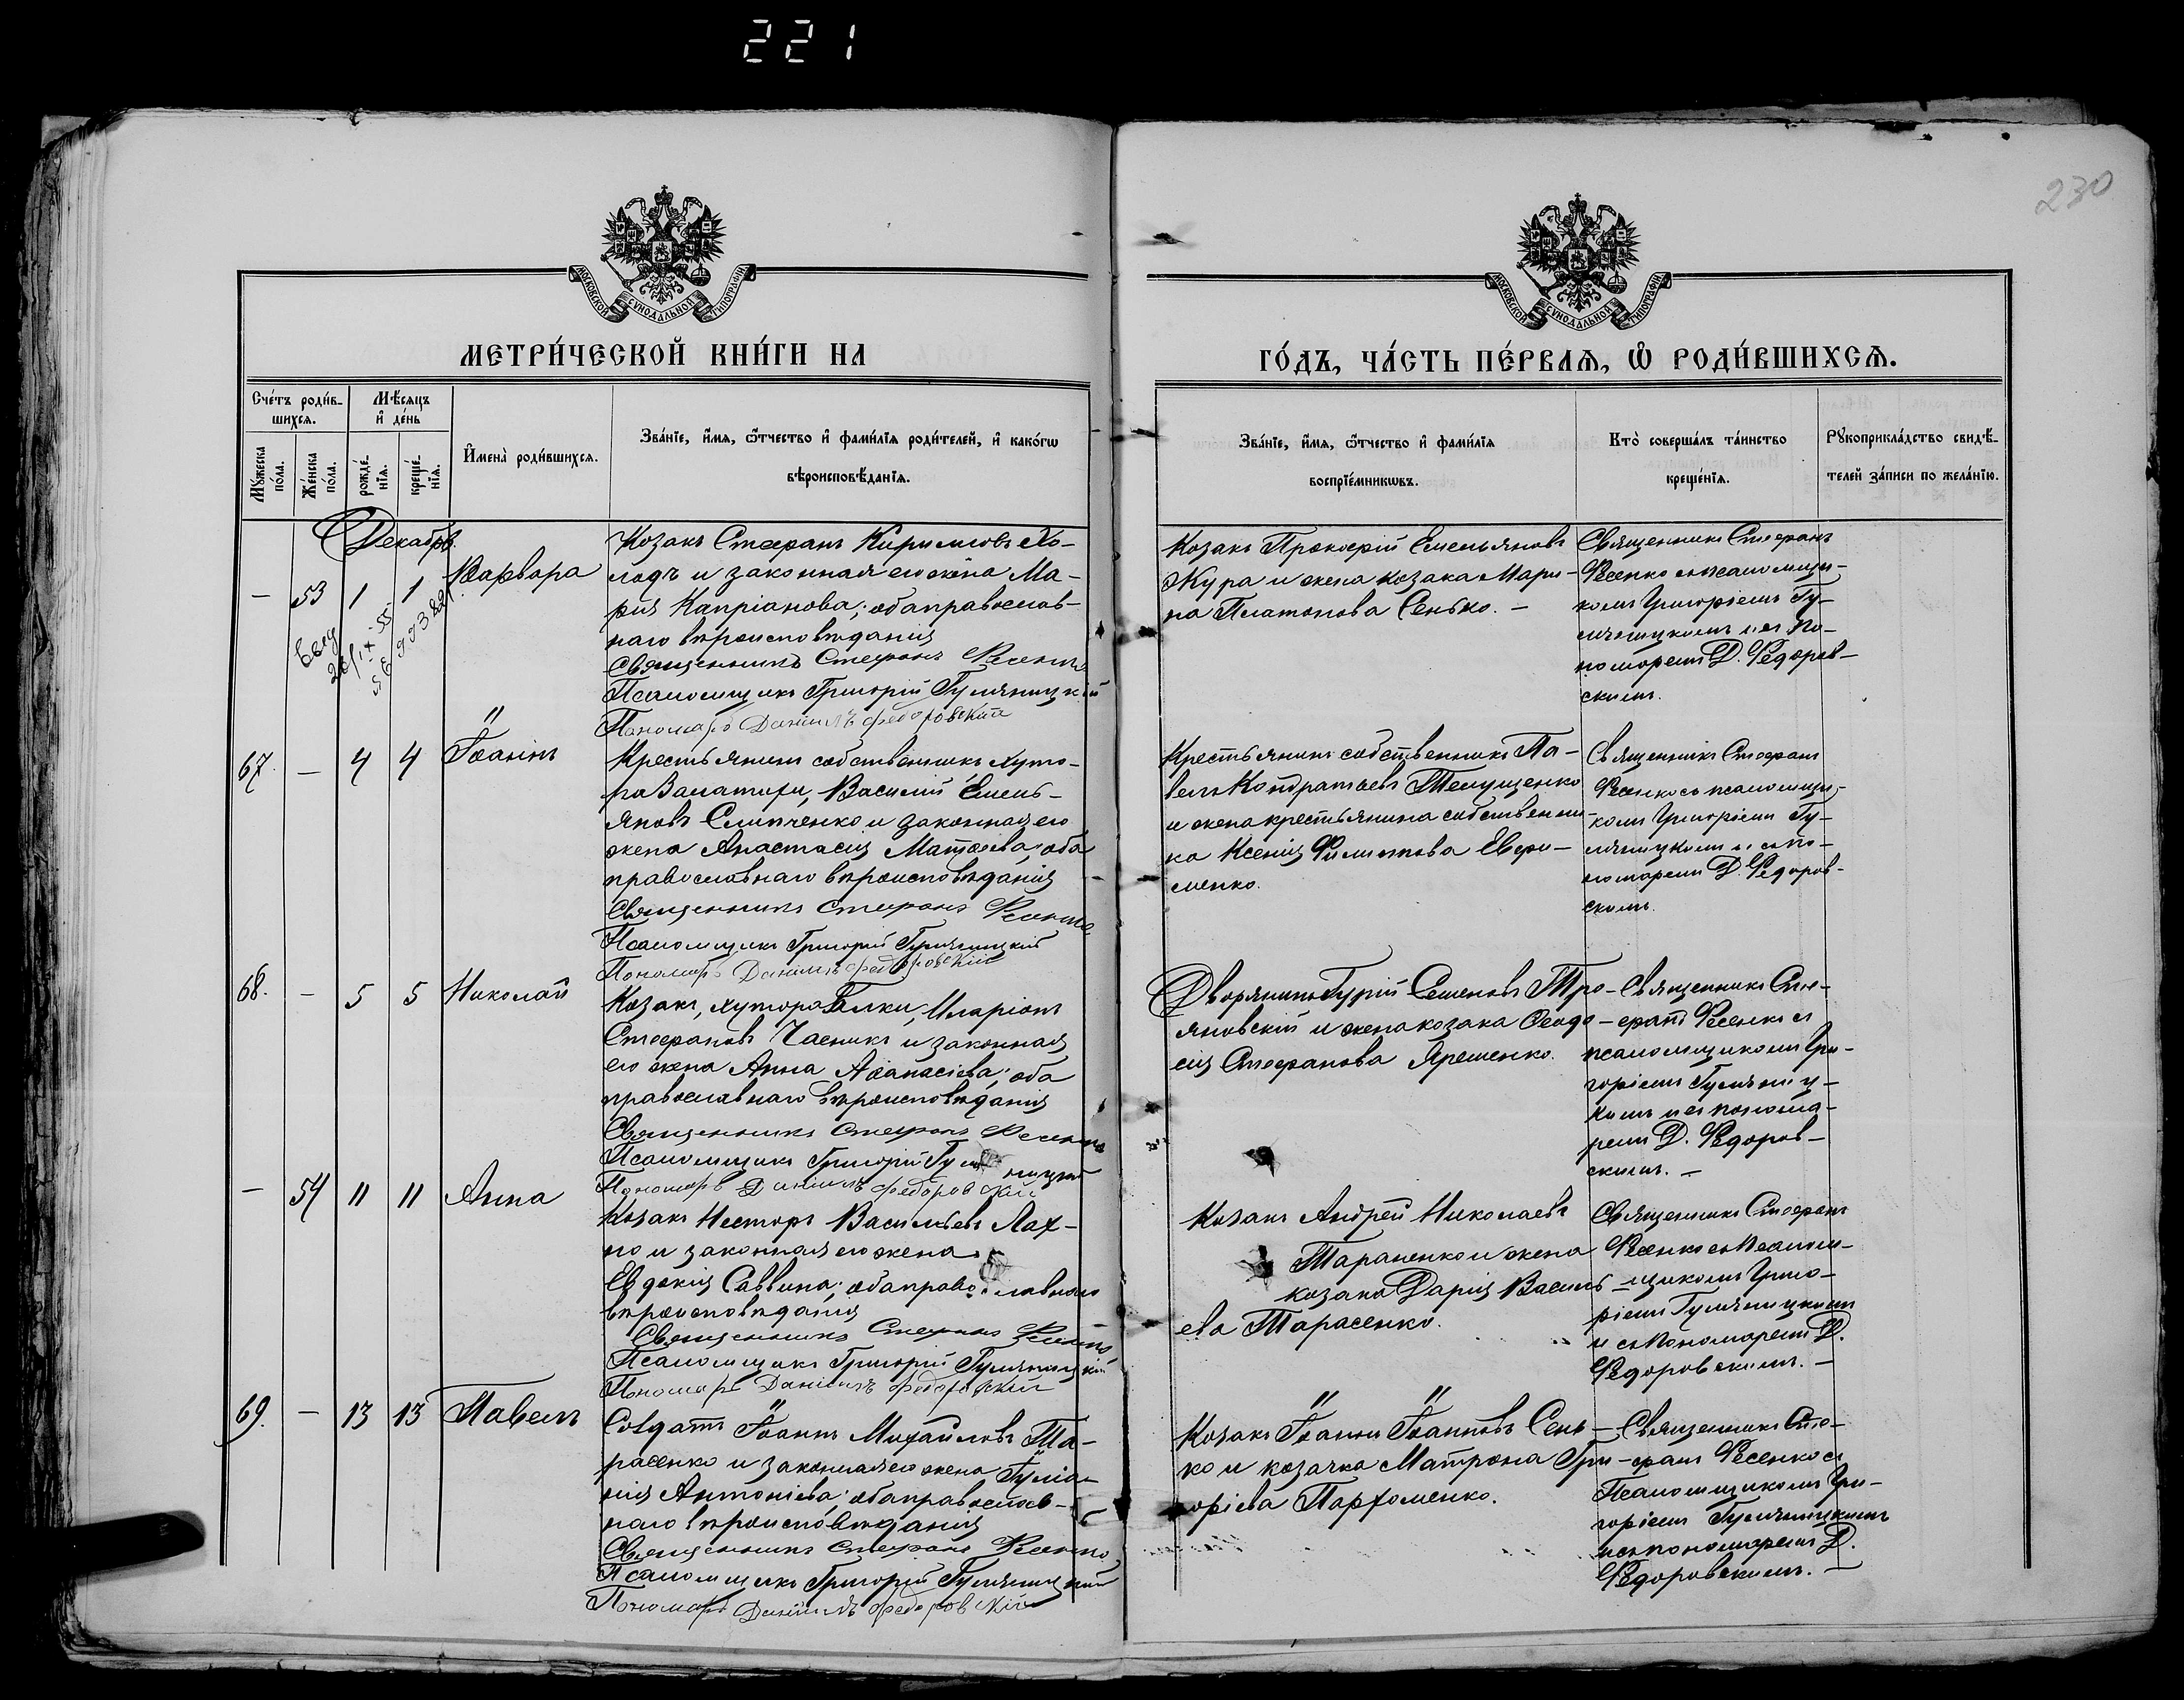 221
230
МОСКОВСКОЙ СѴНОДАЛЬНОЙ ТИПОГРАФІИ
МОСКОВСКОЙ СѴНОДАЛЬНОЙ ТИПОГРАФІИ
МЕТРИ́ЧЕСКОЙ КНИ́ГИ НА
ГО́ДЪ, ЧА́СТЬ ПЕ́РВАѦ, Ѡ РОДИ́ВШИХСѦ.
Сче́тъ роди́в-
шихсѧ.
Мѣ́сѧцъ
и҆ де́нь
Мꙋ́жеска
по́ла.
Же́нска
по́ла.
рожде́-
нїѧ.
креще́-
нїѧ.
И҆мена̀ роди́вшихсѧ.
Зва́нїе, и҆́мѧ, ѻ҆́тчество и҆ фами́лїѧ роди́телей, и҆ како́гѡ
вѣроисповѣ́данїѧ.
Зва́нїе, и҆́мѧ, ѻ҆́тчество и҆ фами́лїѧ
воспрїе́мникѡвъ.
Кто̀ соверша́лъ та́инство
креще́нїѧ.
Рꙋкоприкла́дство свидѣ́-
телей за́писи по жела́нїю.
Декабрь.
— 53 1 1 Варвара
Козакъ Стефанъ Кирилловъ Хо-
лодъ и законная его жена Ма-
рія Капріанова; оба православ-
наго вѣроисповѣданія
Священникъ Стефанъ Фесенко
Псаломщикъ Григорій Гуляницкій
Пономарь Даніилъ Федоровскій
Козакъ Прокофій Емельяновъ
Жура и жена козака Мари-
на Платонова Сенько. —
Священникъ Стефанъ
Фесенко съ псаломщи-
комъ Григоріемъ Гу-
ляницкимъ и съ по-
номаремъ Д. Федоров-
скимъ.
67. — 4 4 Іоаннъ
Крестьянинъ собственникъ хуто-
ра Василій Емель-
яновъ Слипченко и законная его
жена Анастасія Матвѣева; оба
православнаго вѣроисповѣданія
Священникъ Стефанъ Фесенко
Псаломщикъ Григорій Гуляницкій
Пономарь Даніилъ Федоровскій
Крестьянинъ собственникъ Па-
велъ Кондратьевъ Телущенко
и жена крестьянина собственни-
ка Ксенія Филиппова Ефри-
менко.
Священникъ Стефанъ
Фесенко съ псаломщи-
комъ Григоріемъ Гу-
ляницкимъ и съ по-
номаремъ Д. Федоров-
скимъ.
68. — 5 5 Николай
Козакъ, хутора Балки, Иларіонъ
Стефановъ Чаеникъ и законная
его жена Анна Афанасіева; оба
православнаго вѣроисповѣданія
Священникъ Стефанъ Фесенко
Псаломщикъ Григорій Гуляницкій
Пономарь Даніилъ Федоровскій
Дворянинъ Гурій Семеновъ Тро-
яновскій и жена козака Феодо-
сія Стефанова Ярешенко.
Священникъ Сте-
фанъ Фесенко съ
псаломщикомъ Гри-
горіемъ Гуляниц-
кимъ и съ понома-
ремъ Д. Федоров-
скимъ. —
— 54 11 11 Анна
Козакъ Несторъ Васильевъ Лах-
но и законная его жена
Евдокія Саввина; оба православнаго
вѣроисповѣданія
Священникъ Стефанъ Фесенко
Псаломщикъ Григорій Гуляницкій
Пономарь Даніилъ Федоровскій
Козакъ Андрей Николаевъ
Тараненко и жена
козака Дарія Василь-
ева Тарасенко.
Священникъ Стефанъ
Фесенко съ псалом-
щикомъ Григо-
ріемъ Гуляницкимъ
и съ пономаремъ Д.
Федоровскимъ. —
69. — 13 13 Павелъ
Солдатъ Іоаннъ Михайловъ Та-
расенко и законная его жена Іуліа-
нія Антоніева; оба православ-
наго вѣроисповѣданія
Священникъ Стефанъ Фесенко
Псаломщикъ Григорій Гуляницкій
Пономарь Даніилъ Федоровскій
Козакъ Іоаннъ Іоанновъ Сень-
ко и козачка Матрона Гри-
горіева Парфоменко.
Священникъ Сте-
фанъ Фесенко съ
Псаломщикомъ Гри-
горіемъ Гуляницкимъ
и съ пономаремъ Д.
Федоровскимъ. —